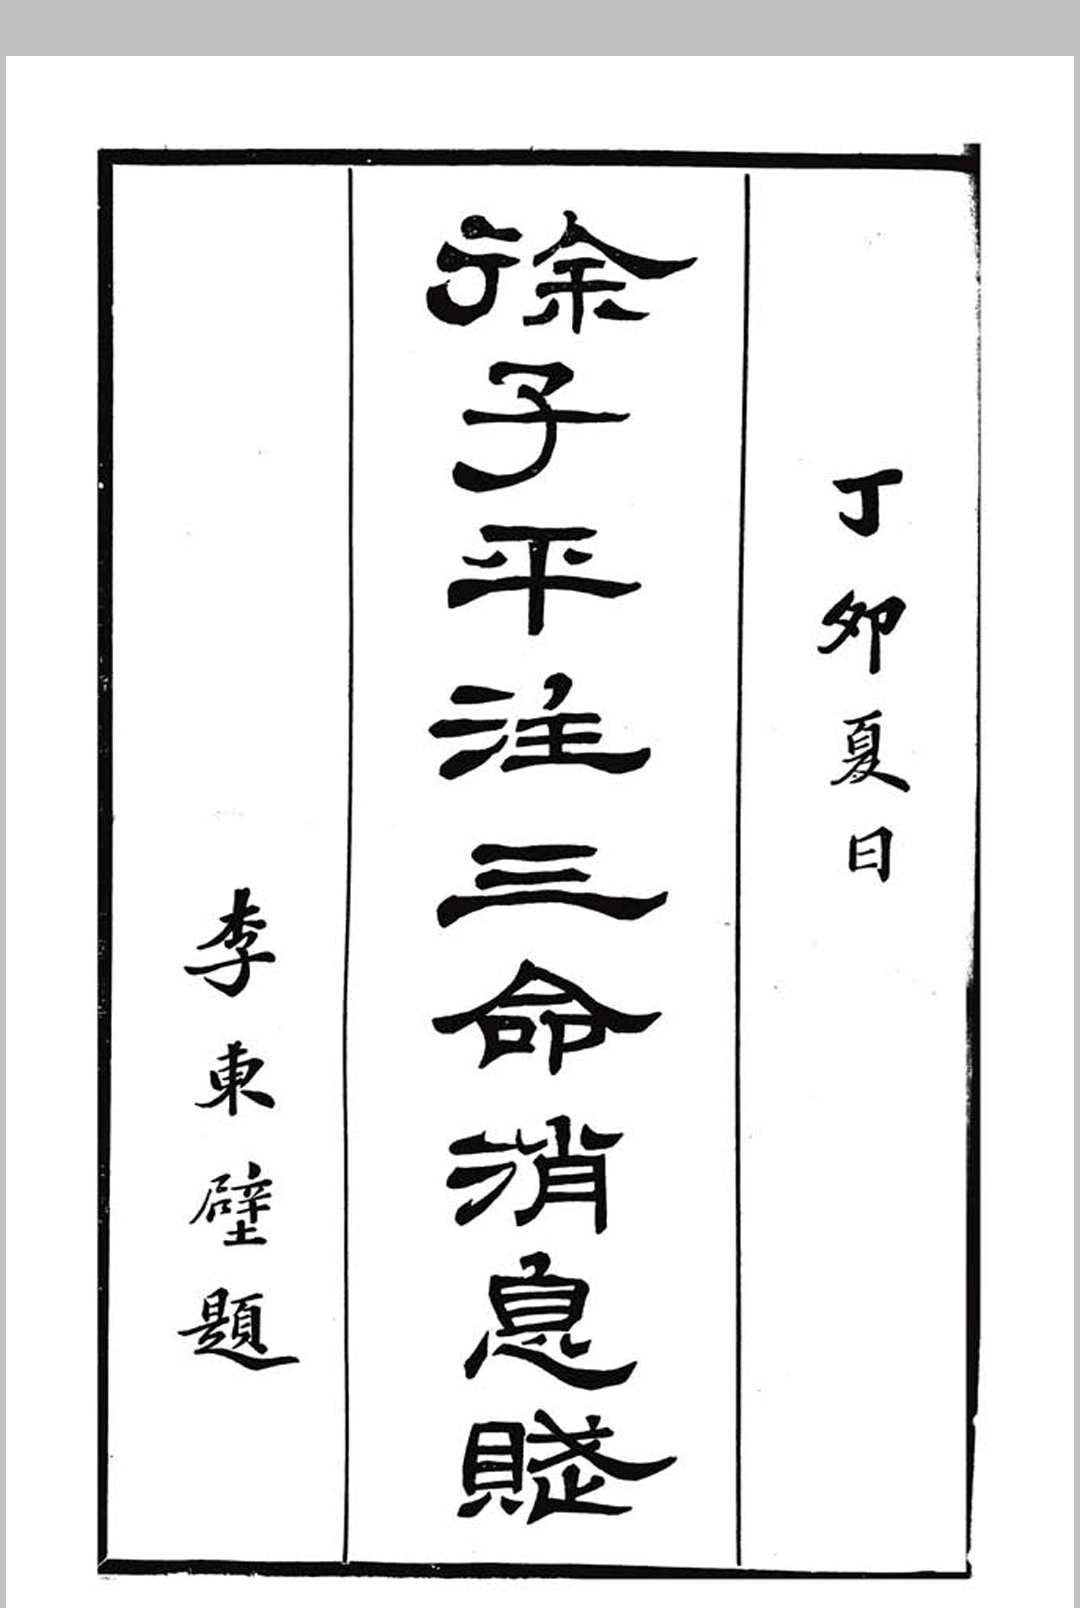 丁卯夏日
徐子平注三命消息賦
李東壁題